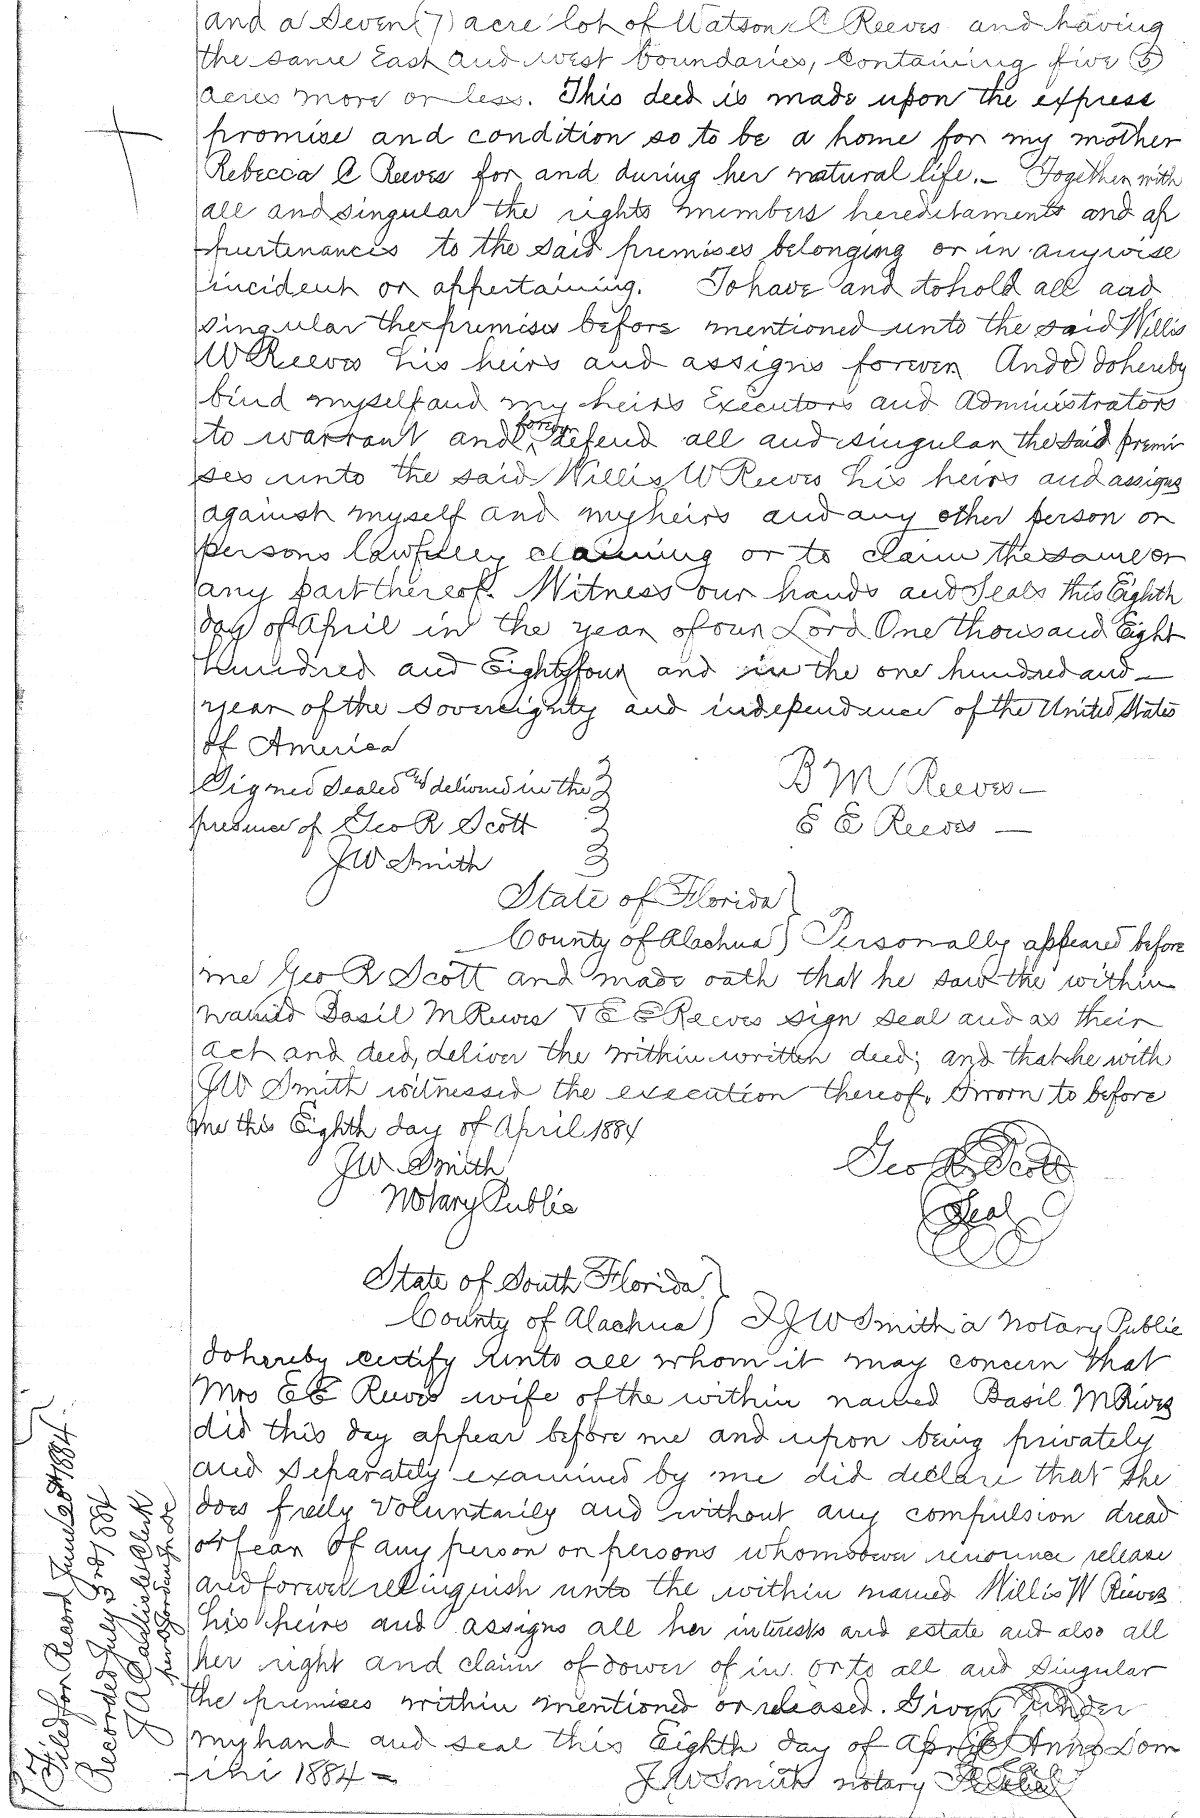 and a Seven (7) acre lot of Watson C Reeves and having
the same East and west boundaries, Containing five (5)
acres more or less. This deed is made upon the express
promise and condition so to be a home for my mother
Rebecca C Reeves for and during her natural life. — Together with
all and singular the rights members hereditaments and ap
purtenances to the said premises belonging or in anywise
incident or appertaining. To have and to hold all and
singular the premises before mentioned unto the said Willis
W Reeves his heirs and assigns forever And I do hereby
bind myself and my heirs Executors and Administrators
to warrant and forever defend all and singular the said premi
ses unto the said Willis W Reeves his heirs and assigns
against myself and my heirs and any other person or
persons lawfully claiming or to claim the same or
any part thereof. Witness our hands and Seals this Eighth
day of April in the year of our Lord One thousand Eight
hundred and Eighty four and in the one hundred and —
year of the Sovereignty and independence of the United States
of America
Signed Sealed and delivered in the
presence of Geo R Scott
J W Smith
B M Reeves —
E E Reeves —
State of Florida }
County of Alachua } Personally appeared before
me Geo R Scott and made oath that he saw the within
named Basil M Reeves & E E Reeves sign seal and as their
act and deed, deliver the within written deed; and that he with
J W Smith witnessed the execution thereof. Sworn to before
me this Eighth day of April 1884
J W Smith
Notary Public
Geo R Scott
Seal
State of South Florida }
County of Alachua } I J W Smith a Notary Public
do hereby certify unto all whom it may concern that
Mrs E E Reeves wife of the within named Basil M Rives
did this day appear before me and upon being privately
and separately examined by me did declare that she
does freely voluntarily and without any compulsion dread
or fear of any person or persons whomsoever renounce release
and forever relinquish unto the within named Willis W Reeves
his heirs and assigns all her interests and estate and also all
her right and claim of dower of in or to all and singular
the premises within mentioned or released. Given under
my hand and seal this Eighth day of April Anno Dom
ini 1884 —
J W Smith notary
Filed for Record June 20th 1884
Recorded July 3rd 1884
J A Carlisle Clerk